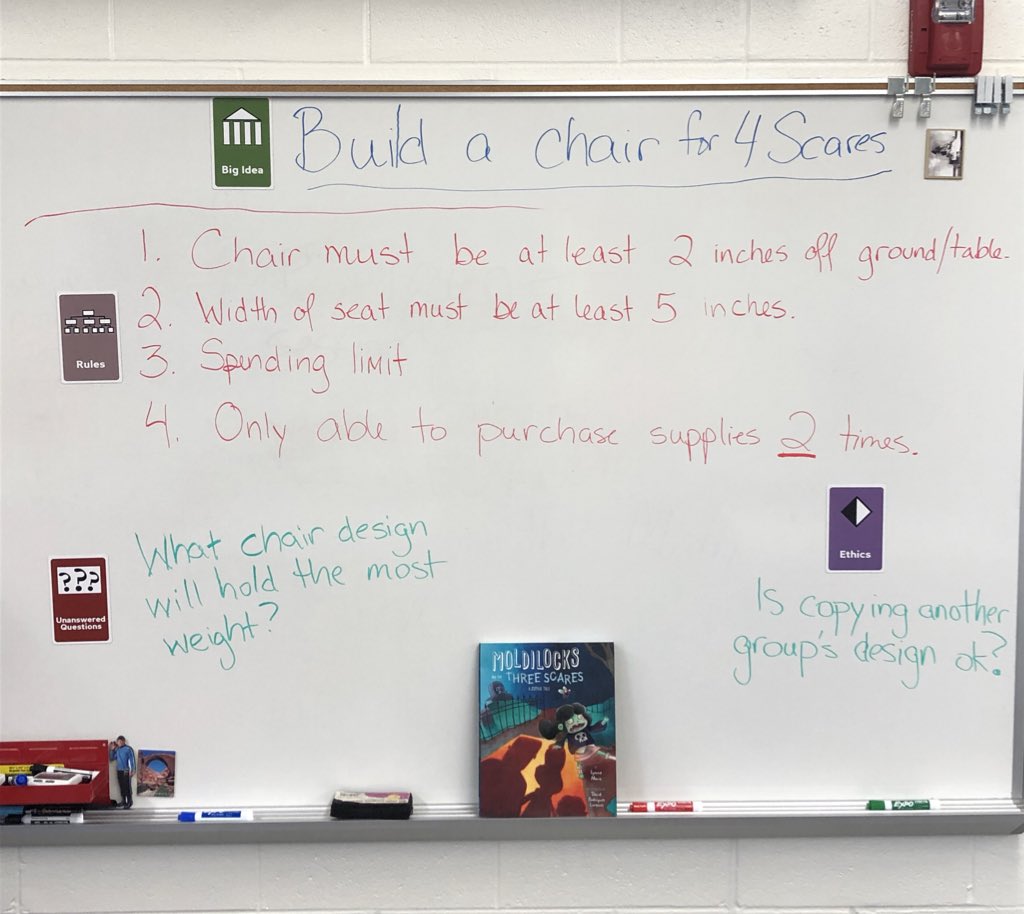 Big Idea
Build a chair for 4 Scares
1. Chair must be at least 2 inches off ground/table.
2. Width of seat must be at least 5 inches.
Rules
3. Spending limit
4. Only able to purchase supplies 2 times.
Ethics
What chair design
will hold the most
weight?
???
Unanswered
Questions
Is copying another
group's design ok?
MOLDILOCKS
AND THE THREE SCARES
EXPO
EXPO